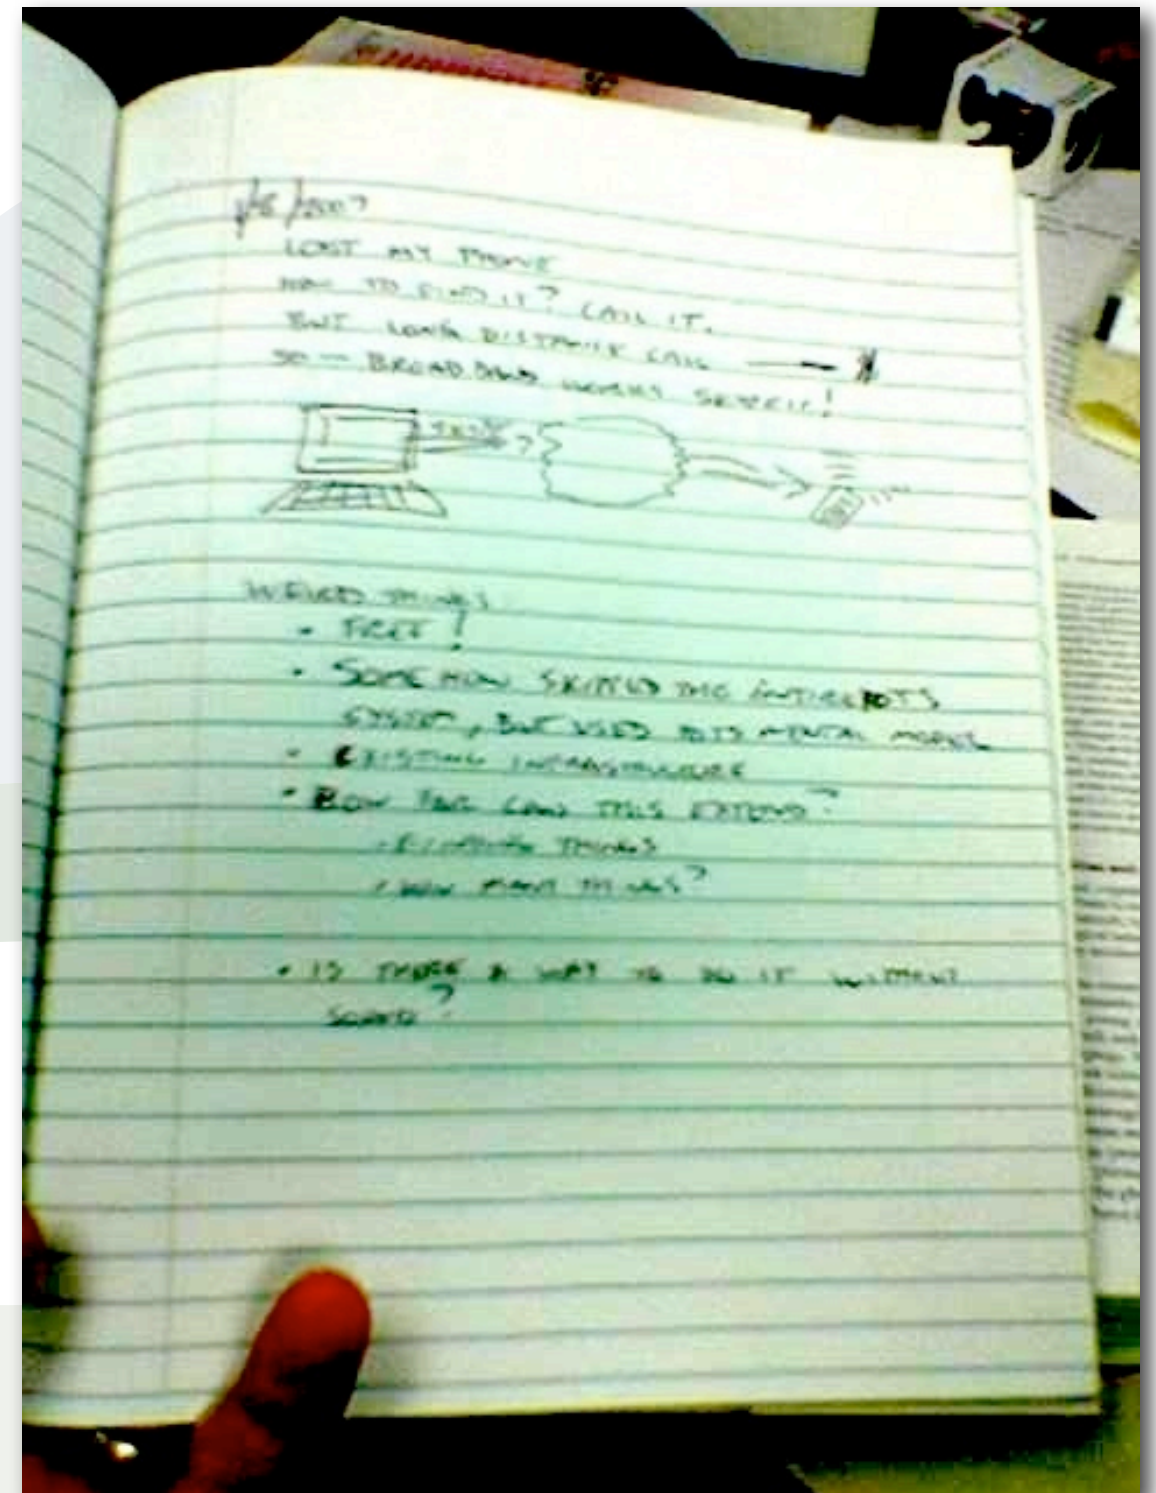 /2007
LOST MY PHONE
HOW TO FIND IT? CALL IT.
BUT LONG DISTANCE CALL
SO — BROADBAND
?
WEIRD THINGS
• FREE!
• SOMEHOW SKIPPED THE ENTIRE POTS
SYSTEM, BUT USED POTS MENTAL MODEL
• EXISTING INFRASTRUCTURE
• HOW FAR CAN THIS EXTEND?
THINGS
HOW MANY THINGS?
• IS THERE A WAY TO DO IT WITHOUT
SOUND?